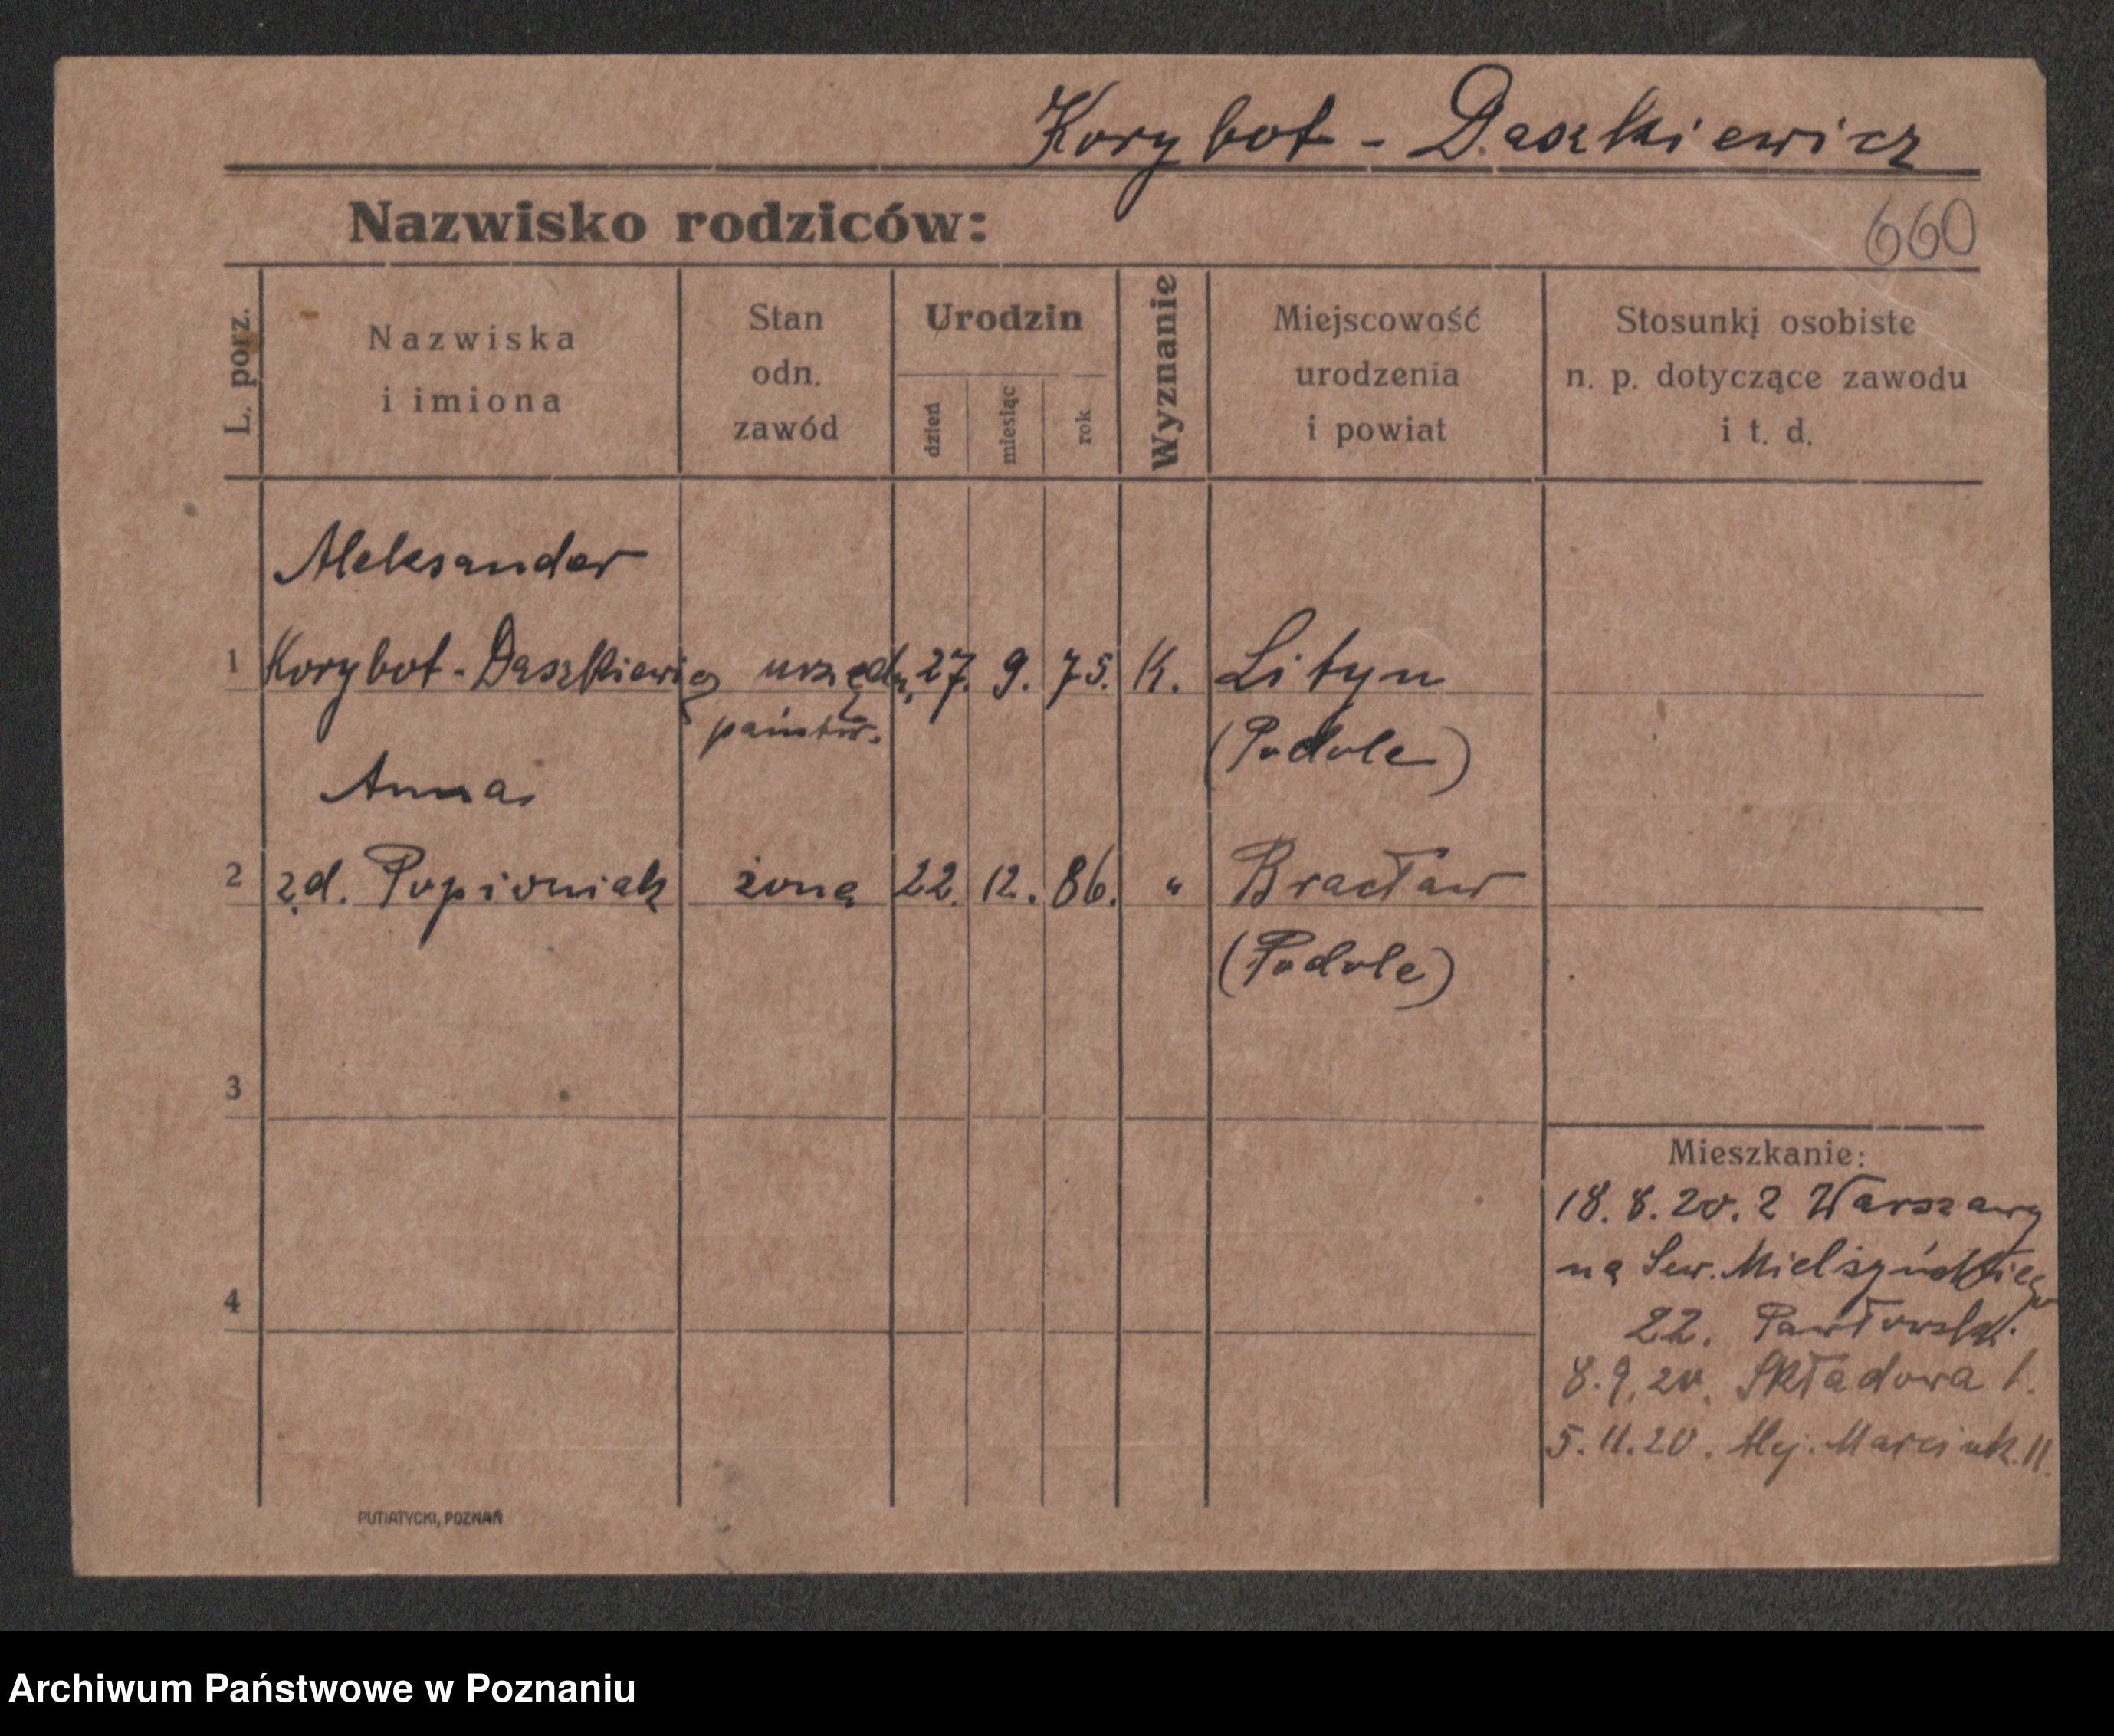 Korybot - Daszkiewicz
Nazwisko rodziców:
660
L. porz.
Nazwiska
i imiona
Stan
odn.
zawód
Urodzin
dzień
miesiąc
rok
Wyznanie
Miejscowość
urodzenia
i powiat
Stosunki osobiste
n. p. dotyczące zawodu
i t. d.
Aleksander
1 Korybot - Daszkiewicz urzędn. 27. 9. 75. K. Lityn
państw. (Podole)
Anna
2 z d. Popiorniak żona 22. 12. 86. " Bracław
(Podole)
3
4
Mieszkanie:
18. 8. 20. z Warszawy
na Sew. Mielżyńskiego
22. Pawłowski.
8. 9. 20. Składowa 1.
5. 11. 20. Alej. Marcink. 11.
PUTIATYCKI, POZNAŃ
Archiwum Państwowe w Poznaniu